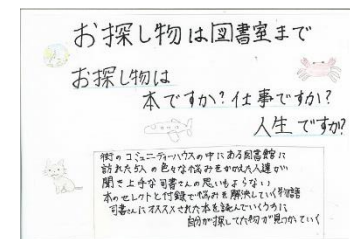 お探し物は図書室まで
お探し物は
本ですか?仕事ですか?
人生ですか?
街のコミュニティーハウスの中にある図書館に
訪れた5人の色々な悩みをかかえた人達が
聞き上手な司書さんの思いもよらない
本のセレクトと付録で悩みを解決していく物語
司書さんにオススメされた本を読んでいくうちに
自分が探してた物が見つかていく